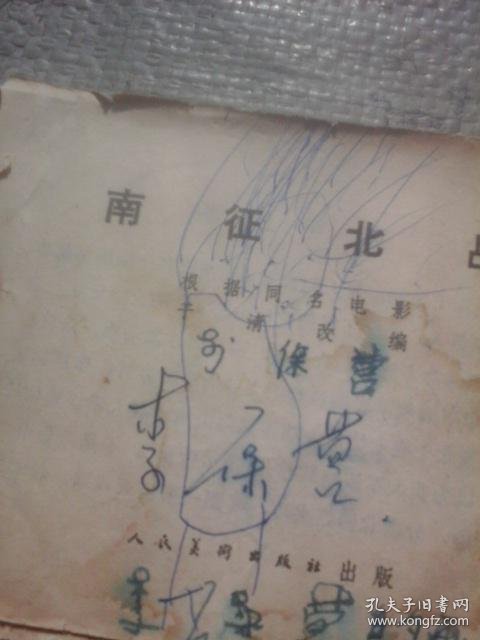 南征北
根据同名电影
于清改编
保 营
李保营
人民美术出版社出版
孔夫子旧书网
www.kongfz.com